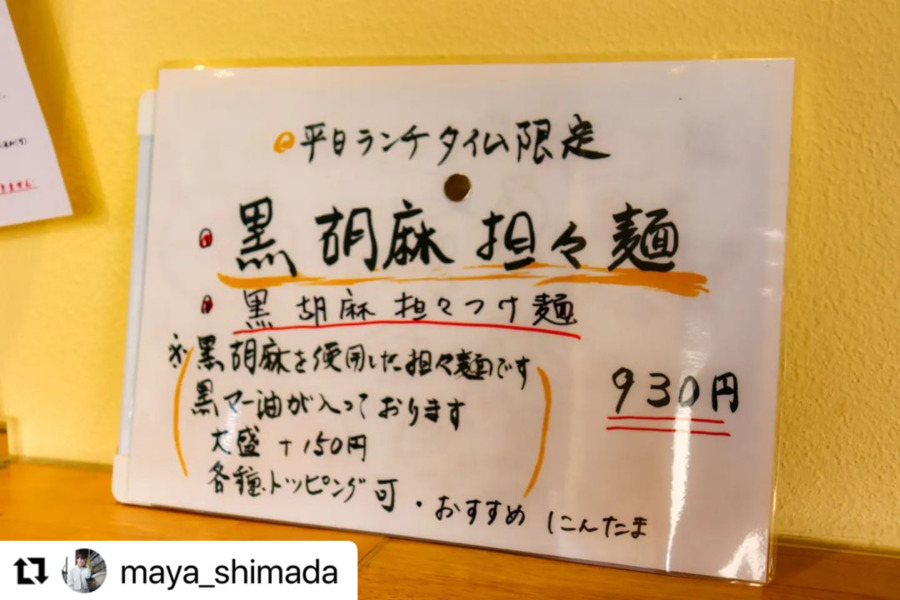 平日ランチタイム限定
黒胡麻担々麺
黒胡麻担々つけ麺
※黒胡麻を使用した担々麺です
黒マー油が入っております
大盛+150円
各種トッピング可・おすすめ にんたま
930円
maya_shimada